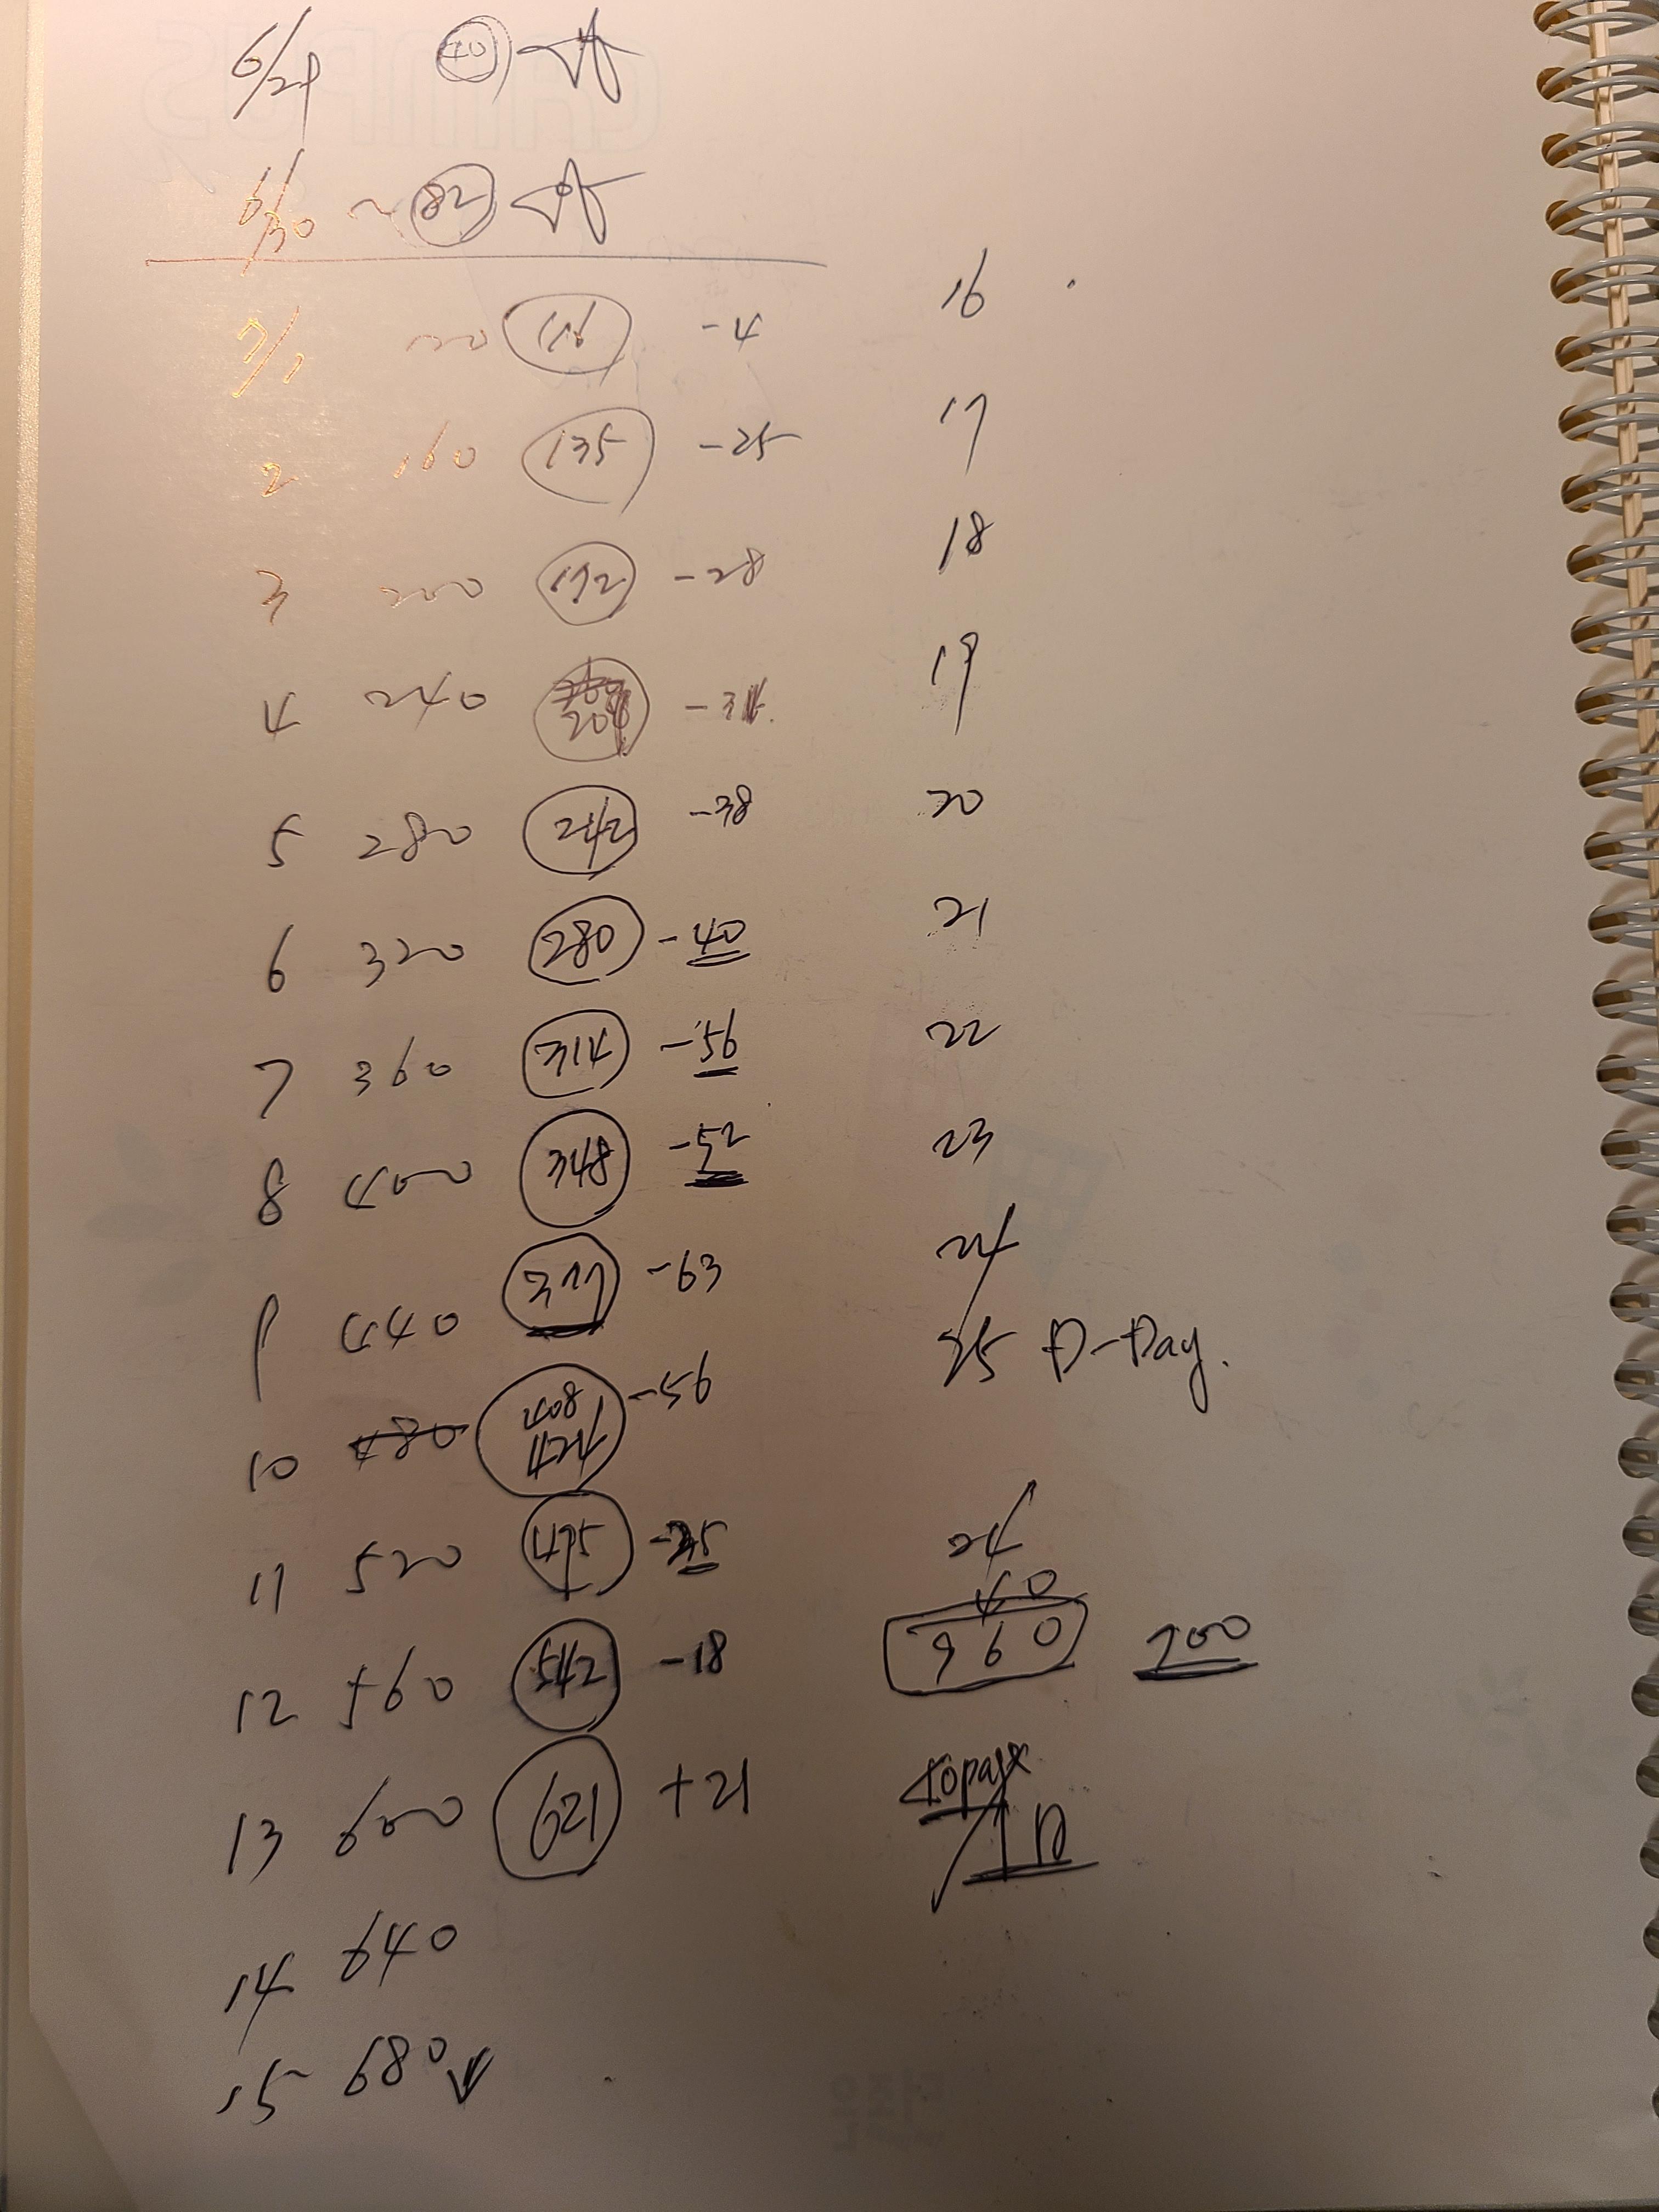 6/29 40
6/30 ~ 82
7/1 120 116 -4
2 160 135 -25
3 200 172 -28
4 240 -31
5 280 242 -38
6 320 280 -40
7 360 314 -56
8 400 348 -52
9 440 377 -63
10 480 408 424 -56
11 520 495 -25
12 560 542 -18
13 600 621 +21
14 640
15 680
16
17
18
19
20
21
22
23
24
25 D-Day.
24
40
960 700
40page